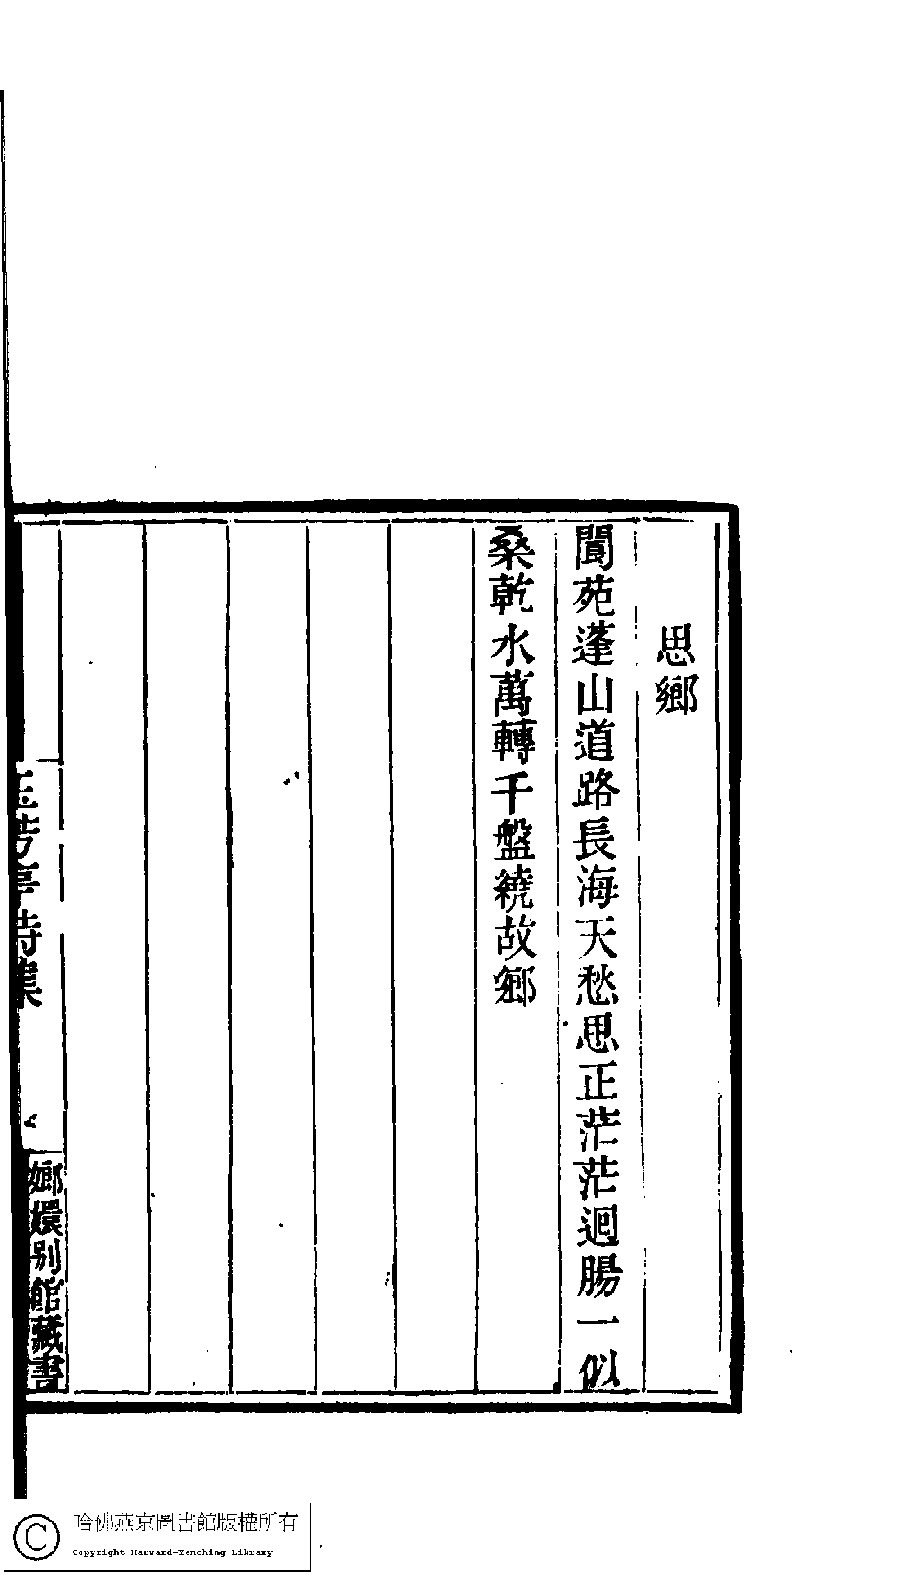 思鄉
閬苑蓬山道路長海天愁思正茫茫迴腸一似
桑乾水萬轉千盤繞故鄉
玉芳亭詩集
嫏嬛别館藏書
哈佛燕京圖書館版權所有
Copyright Harvard-Yenching Library